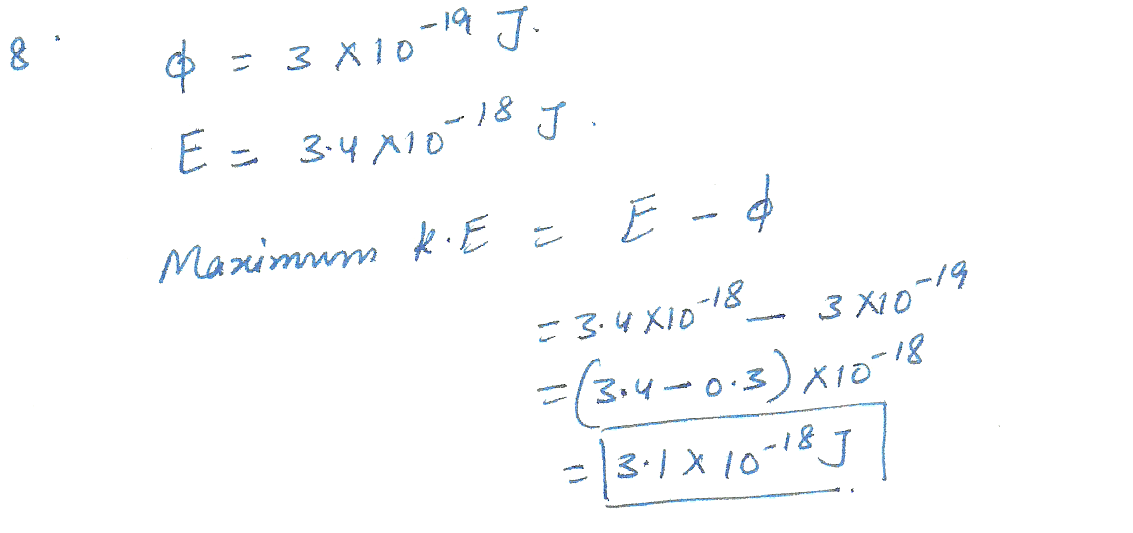 8. ϕ = 3 × 10⁻¹⁹ J.
E = 3.4 × 10⁻¹⁸ J.
Maximum k.E = E - ϕ
= 3.4 × 10⁻¹⁸ - 3 × 10⁻¹⁹
= (3.4 - 0.3) × 10⁻¹⁸
= 3.1 × 10⁻¹⁸ J